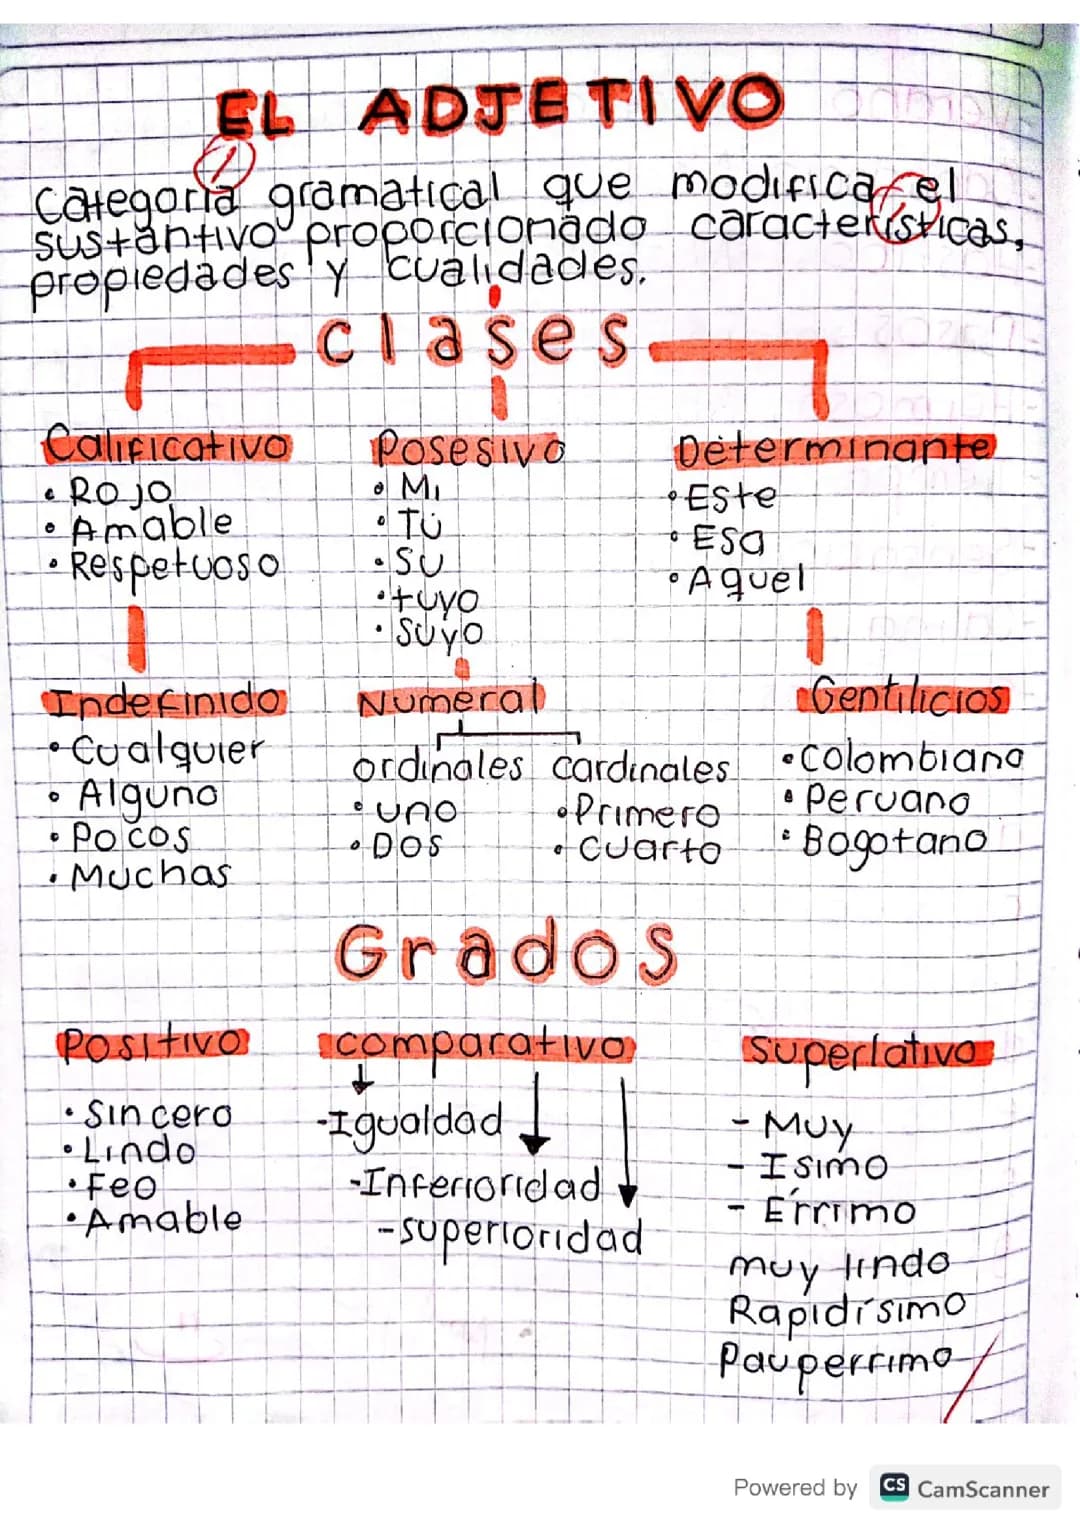 EL ADJETIVO
Categoría gramatical que modifica el
sustantivo proporcionado características,
propiedades y cualidades.
clases
Calificativo
• Rojo
• Amable
• Respetuoso
Posesivo
• Mi
• Tú
• SU
• tuyo
• Suyo
Determinante
• Este
• Esa
• Aquel
Indefinido
• Cualquier
• Alguno
• Pocos
• Muchas
Numeral
ordinales cardinales
• uno • Primero
• Dos • Cuarto
Gentilicios
• Colombiano
• Peruano
• Bogotano
Grados
Positivo
• Sincero
• Lindo
• Feo
• Amable
comparativo
-Igualdad
-Inferioridad
-superioridad
superlativo
- Muy
- Isimo
- Érrimo
muy lindo
Rapidísimo
Pauperrimo
Powered by CS CamScanner